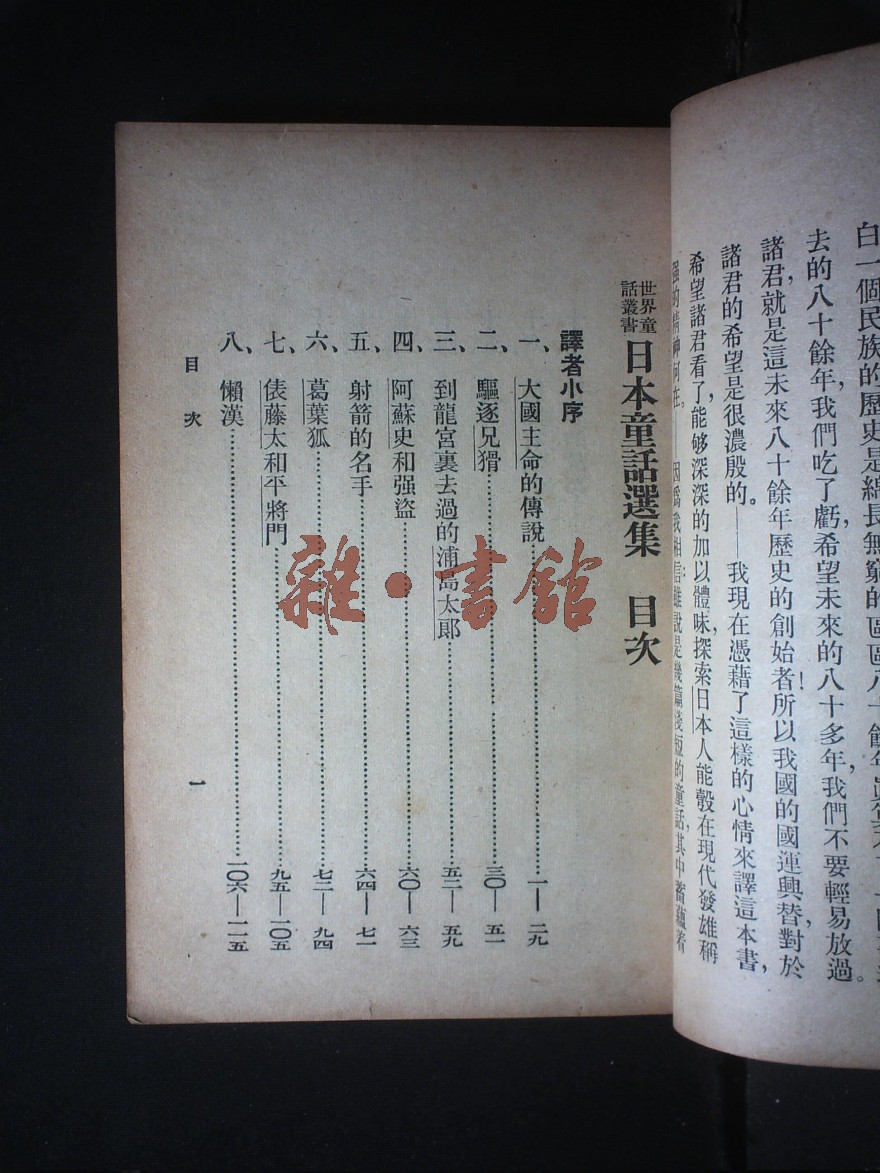 去的八十餘年，我們吃了虧，希望未來的八十多年，我們不要輕易放過。
諸君，就是這未來八十餘年歷史的創始者！所以我國的國運興替，對於
諸君的希望是很濃殷的。——我現在憑藉了這樣的心情來譯這本書，
希望諸君看了，能够深深的加以體味，探索日本人能彀在現代發雄稱
强的精神何在。——因爲我相信雖說是幾篇淺短的童話，其中蓄蘊着
世界童
話叢書
日本童話選集 目次
譯者小序
一、大國主命的傳說……一—二九
二、驅逐兄猾……三〇—五一
三、到龍宮裏去過的浦島太郎……五二—五九
四、阿蘇史和强盜……六〇—六三
五、射箭的名手……六四—七一
六、葛葉狐……七二—九四
七、俵藤太和平將門……九五—一〇五
八、懶漢……一〇六—一一五
目次
一
雜·書館